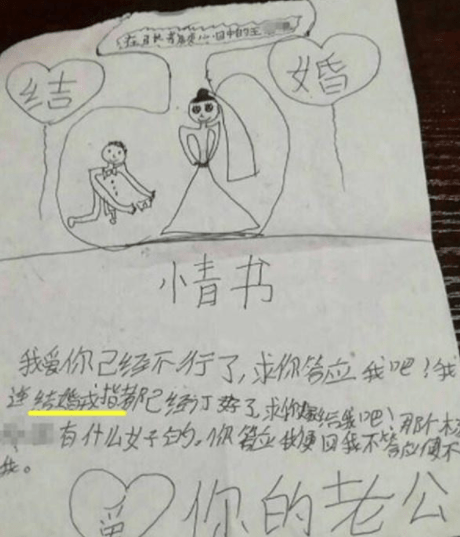 心目中的
结 婚
情书
我爱你已经不行了,求你答应我吧!我
连结婚戒指都已经订好了,求你嫁给我吧!那个
有什么好的。你答应我便回我不答应便不
我。
爱 你的老公